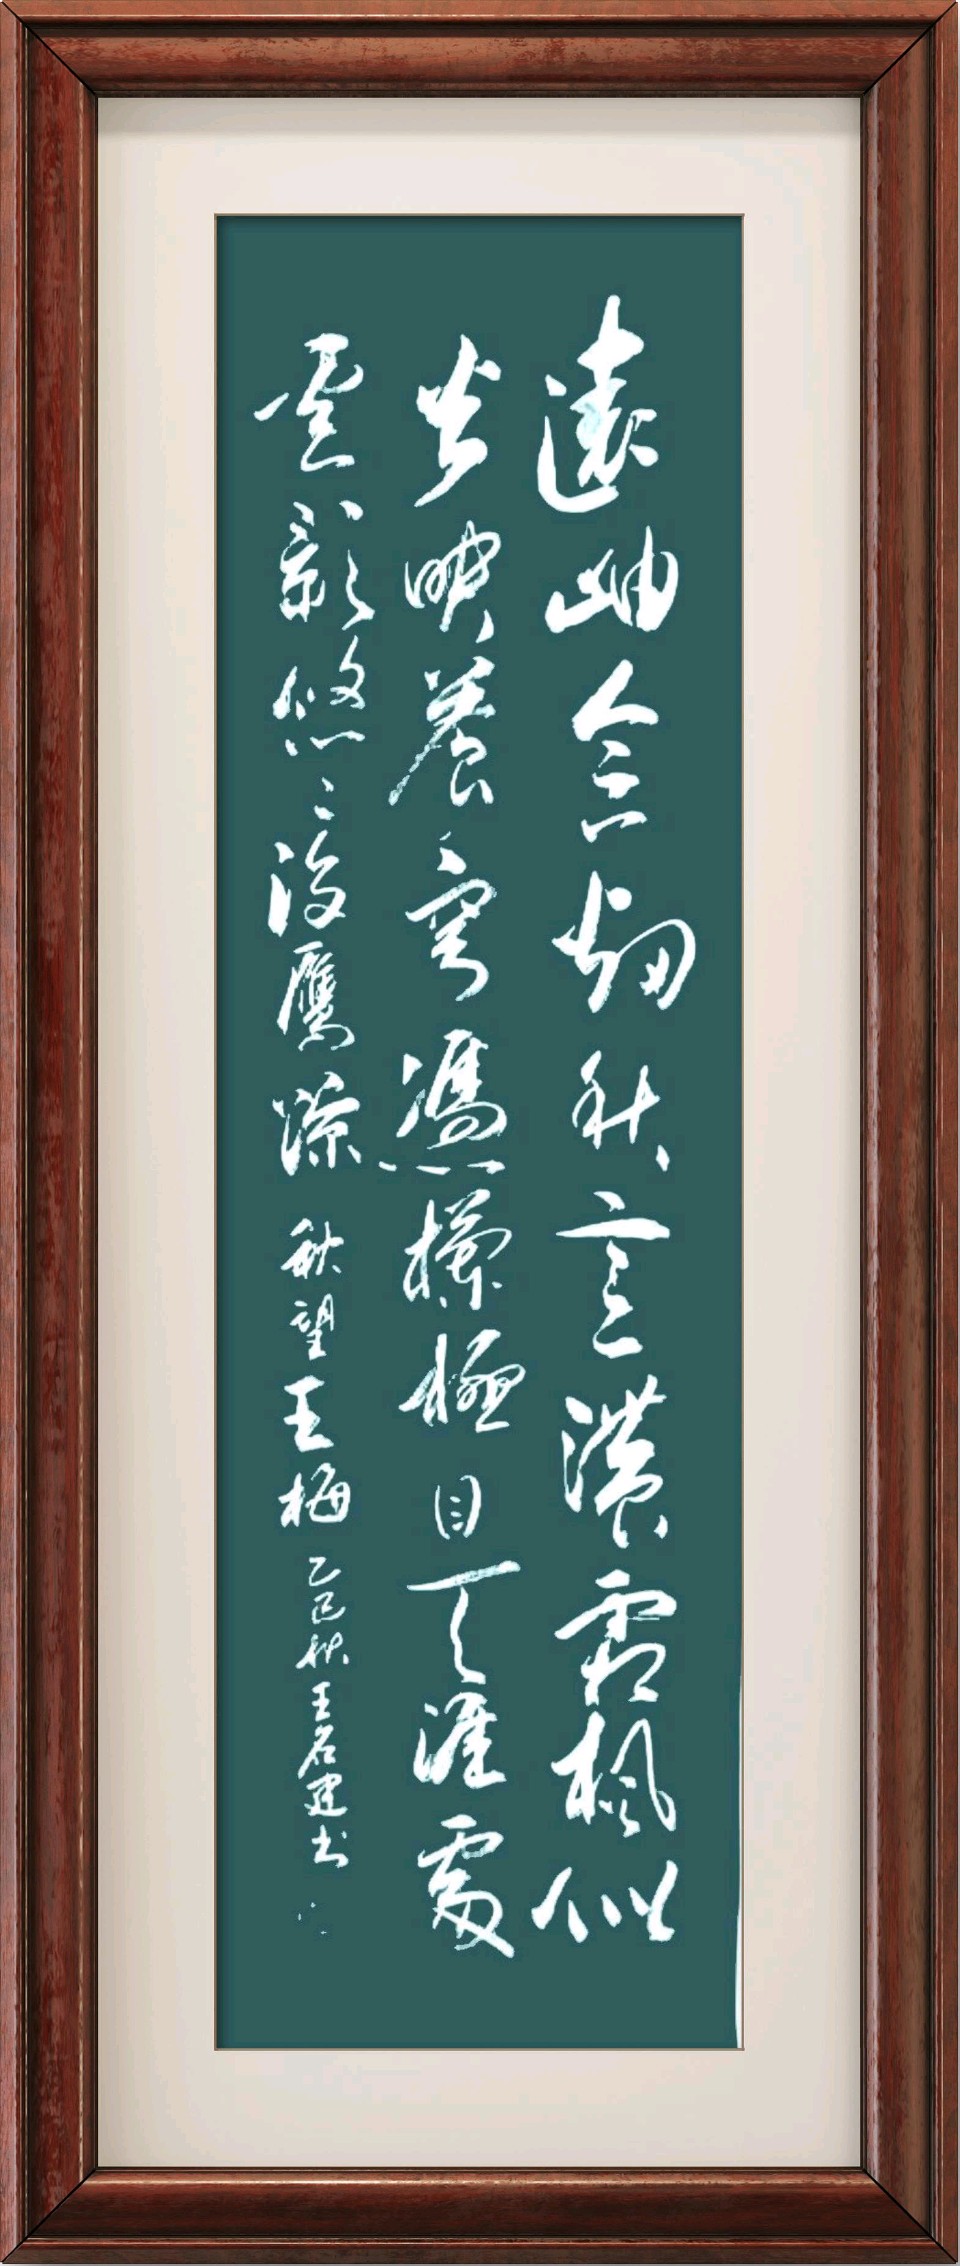 遠岫含烟秋意濃霜楓似
火映蒼穹憑欄極目天涯處
雲影悠悠没鷹踪 秋望王梅 乙巳秋王名建书